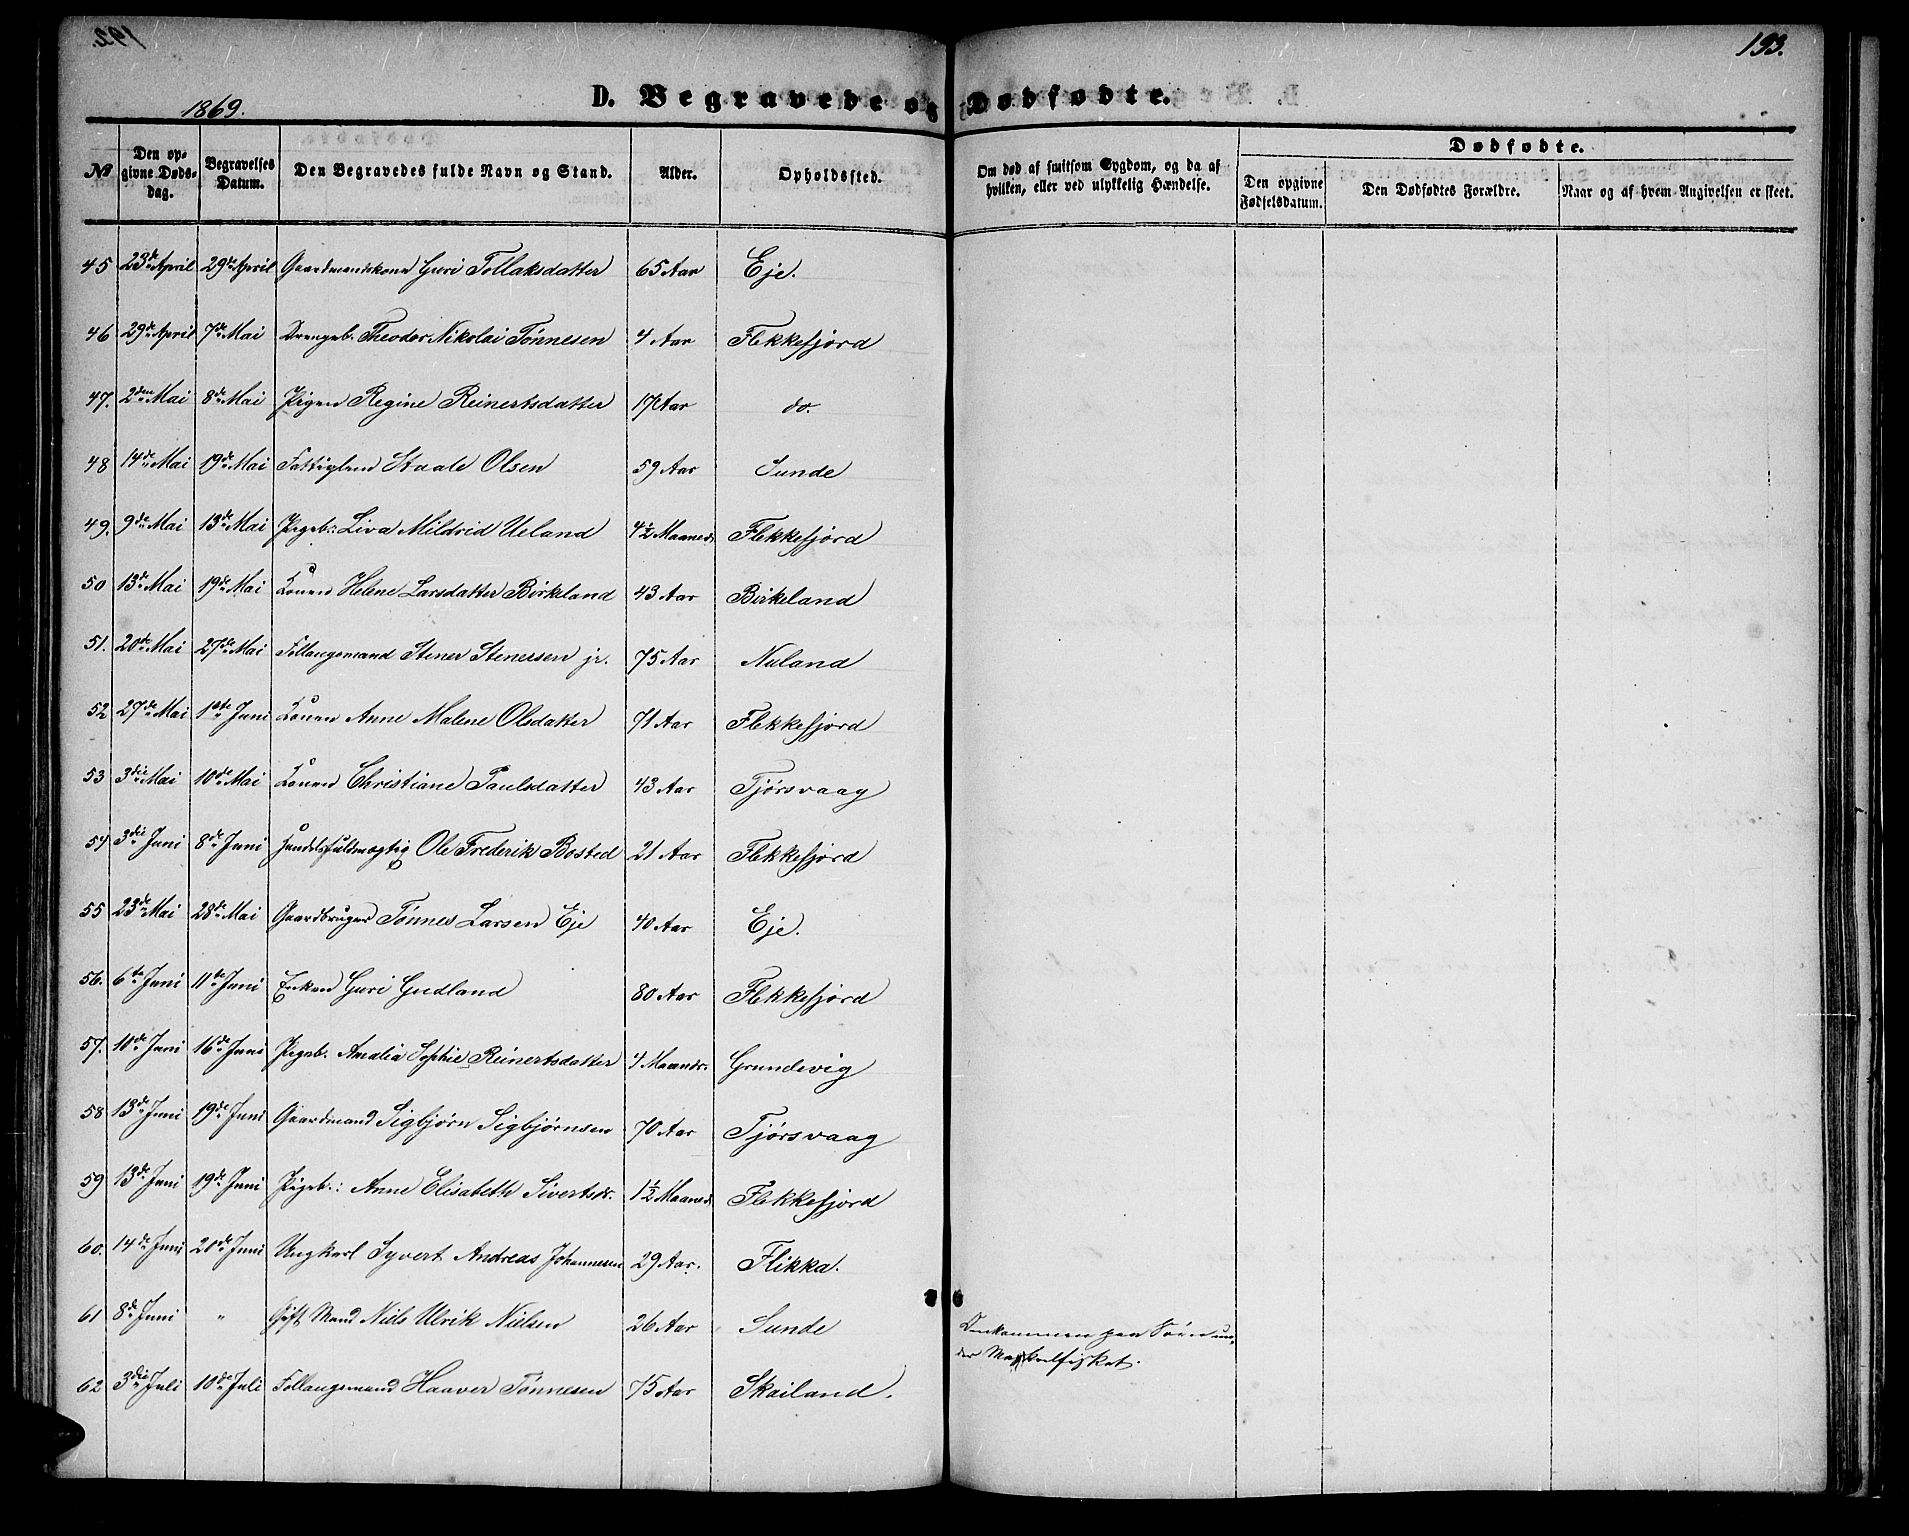 193.
1869.
D. Begravede og Dødfødte.
No
Den opgivne Dødsdag.
Begravelses Datum.
Den Begravedes fulde Navn og Stand.
Alder.
Opholdssted.
Om død af smitsom Sygdom, og da af hvilken, eller ved ulykkelig Hændelse.
Dødfødte.
Den opgivne Fødselsdatum.
Den Dødfødtes Forældre.
Naar og af hvem Angivelsen er skeet.
45 23de April 29de April Gaardmandskone Guri Tollaksdatter 65 Aar Eje.
46 29de April 7de Mai Drengeb. Theodor Nikolai Tønnesen 4 Aar Flekkefjord
47. 2den Mai 8de Mai Pigen Regine Reinertsdatter 17 Aar do.
48 14de Mai 19de Mai Fattiglem Staale Olsen 59 Aar Sunde
49. 9de Mai 13de Mai Pigeb: Liva Mildrid Ueland 4½ Maaned. Flekkefjord
50 13de Mai 19de Mai Konen Helene Larsdatter Birkeland 43 Aar Birkeland
51. 20de Mai 27de Mai Follaugsmand Stener Stenersen jr. 75 Aar Nuland
52 27de Mai 1ste Juni Konen Anne Malene Olsdatter 71 Aar Flekkefjord
53 3die Mai 10de Mai Konen Christiane Paulsdatter 43 Aar Tjørsvaag
54 3die Juni 8de Juni Handelsfuldmægtig Ole Frederik Bosted 21 Aar Flekkefjord
55 23de Mai 28de Mai Gaardbruger Tønnes Larsen Eje 40 Aar Eje.
56. 6te Juni 11te Juni Enken Guri Gudland 80 Aar Flekkefjord
57. 10de Juni 16de Juni Pigeb. Amalia Sophie Reinertsdatter 4 Maandr. Grundevig
58 13de Juni 19de Juni Gaardmand Sigbjørn Sigbjørnsen 70 Aar Tjørsvaag
59 13de Juni 19de Juni Pigeb.: Anne Elisabeth Sivertsdr. 1½ Maaned. Flekkefjord
60. 14de Juni 20de Juni Ungkarl Syvert Andreas Johannesen 29 Aar. Flikka.
61 8de Juni " Gift Mand Niels Ulrik Nielsen 26 Aar Sunde Omkommen paa Søen un-
der Makrelfisket.
62 3die Juli 10de Juli Follaugsmand Haaver Tønnesen 75 Aar Skailand.